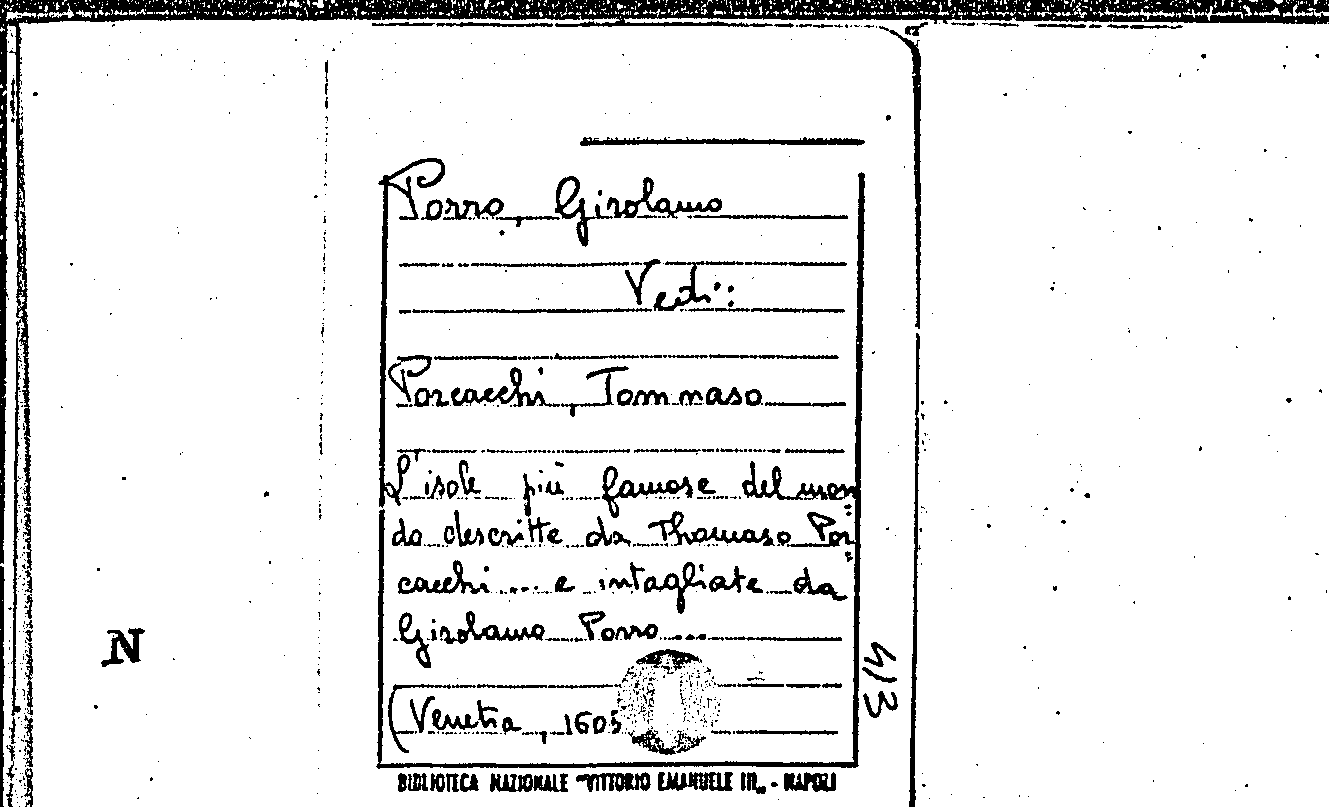 Porro, Girolamo
Vedi:
Porcacchi, Tommaso
L'isole più famose del mon=
do descritte da Thomaso Por=
cacchi.... e intagliate da
Girolamo Porro...
(Venetia, 1605
N
413
BIBLIOTECA NAZIONALE "VITTORIO EMANUELE III„ - NAPOLI